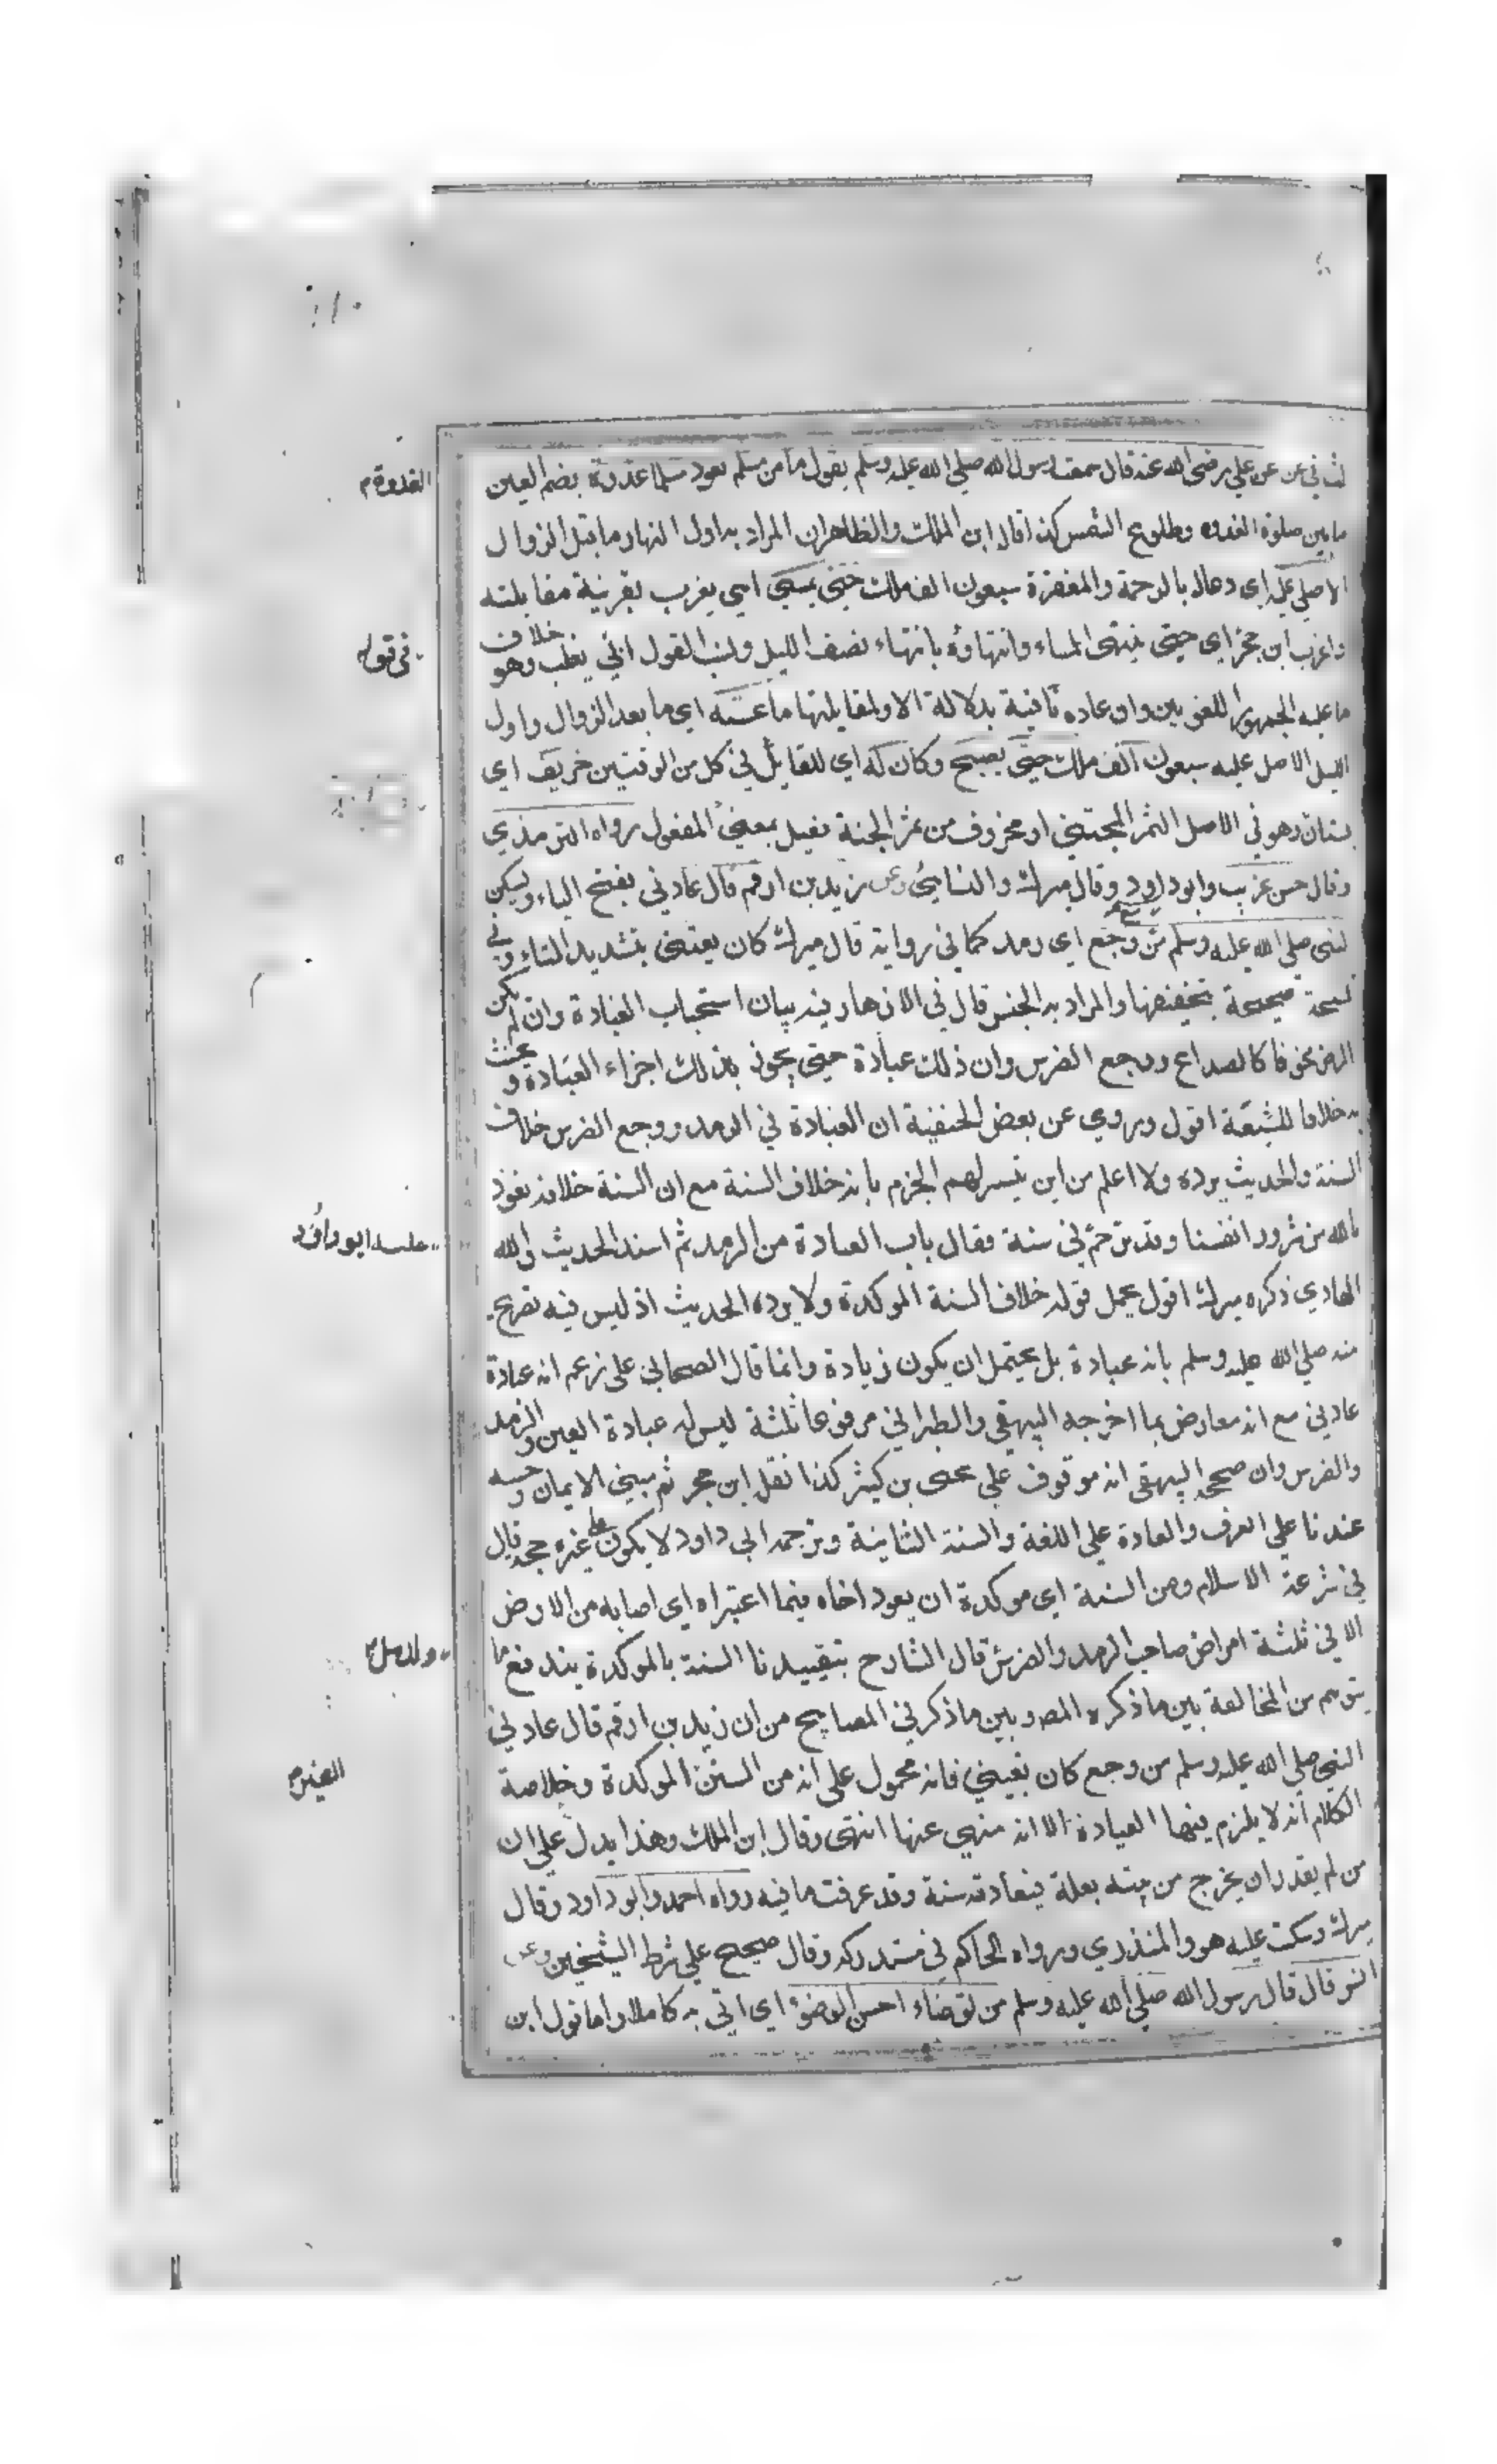 الثاني عن عن علي رضي الله عنه قال سمعت رسول الله صلي الله عليه وسلم يقول ما من مسلم يعود مسلما غدوة بضم الغين
الغدوة م
ما بين صلوة الغدوه وطلوع الشمس كذا قال ابن الملك والظاهر ان المراد به اول النهار وما قبل الزوال
الا صلي عليه اي دعا له بالرحمة والمغفرة سبعون الف ملك حتي يمسي اي يغرب بقرينة مقابلته
واغرب ابن حجر اي حتي ينتهي المساء وانتهاؤه بانتهاء نصف الليل ولنب القول ثعلب وهو خلاف
في قوله
ما عليه الجمهور اللغويين وان عاده ثانية بدلالة الاو لمقابلتها ما عشيه اي ما بعد الزوال واول
الليل الا صل عليه سبعون الف ملك حتي يصبح وكان له اي للقايل في كل من الوقتين خريف اي
بستان وهو في الاصل الثمر المجتني او مخروف من ثمر الجنة فعيل بمعني المفعول رواه الترمذي
وقال حسن غريب وابو داود وقال ميرك والنسايي وعن زيد بن ارقم قال عادني بفتح الياء ويسكن
النبي صلي الله عليه وسلم من وجع اي رمد كما في رواية قال ميرك كان بعيني بتشديد الياء وفي
نسخة صحيحة بتخفيفها والمراد به الجنس قال في الازهار فيه بيان استحباب العيادة وان لم يكن
المرض مخوفا كالصداع ووجع الضرس وان ذلك عيادة حتي يحوز بذلك اجزاء العيادة و يحنث
به خلافا للشيعة اقول وروي عن بعض الحنفية ان العيادة في الرمد ووجع الضرس خلاف
السنة والحديث يرده ولا اعلم من اين تيسر لهم الجزم بانه خلاف السنة مع ان السنة خلافه نعوذ
بالله من شرور انفسنا وقد ترجم في سننه فقال باب العيادة من الرمد ثم اسند الحديث والله
عليه ابو داؤد
الهادي ذكره ميرك اقول يحمل قوله خلاف السنة الموكدة ولا يرده الحديث اذ ليس فيه تصريح
منه صلي الله عليه وسلم بانه عيادة بل يحتمل ان يكون زيادة وانما قال الصحابي علي زعم انه عيادة
عادني مع انه معارض بما اخرجه البيهقي والطبراني مرفوعا ثلثة ليس له عيادة العين والرمد
والضرس وان صحح البيهقي انه موقوف علي يحيي بن كثير كذا نقل ابن حجر ثم مبني الايمان و
عندنا علي العرف والعادة علي اللغة والسنة الثانية وترجمه ابي داود لا يكون علي غيره حجة قال
في شرعة الاسلام ومن السنة اي موكدة ان يعود اخاه فيما اعتراه اي اصابه من الارض
الا في ثلثة امراض صاحب الرمد والضرس قال الشارح بتقييدنا السنة بالموكدة يندفع ما
والدمل م
يتوهم من المخالفة بين ما ذكره المصـ وبين ما ذكر في المصابيح من ان زيد بن ارقم قال عادني
النبي صلي الله عليه وسلم من وجع كان بعيني فانه محمول علي انه من السنن الموكدة وخلاصة
الغير م
الكلام انه لا يلزم فيها العيادة الا انه منهي عنها انتهي وقال ابن الملك وهذا يدل علي ان
من لم يقدر ان يخرج من بيته بعلة فيعادته سنة وقد عرفت ما فيه رواه احمد وابو داود وقال
ميرك وسكت عليه هو والمنذري ورواه الحاكم في مستدركه وقال صحيح علي شرط الشيخين وعن
انس قال قال رسول الله صلي الله عليه وسلم من توضاء احسن الوضوء اي اتي به كاملا واما قول ابن